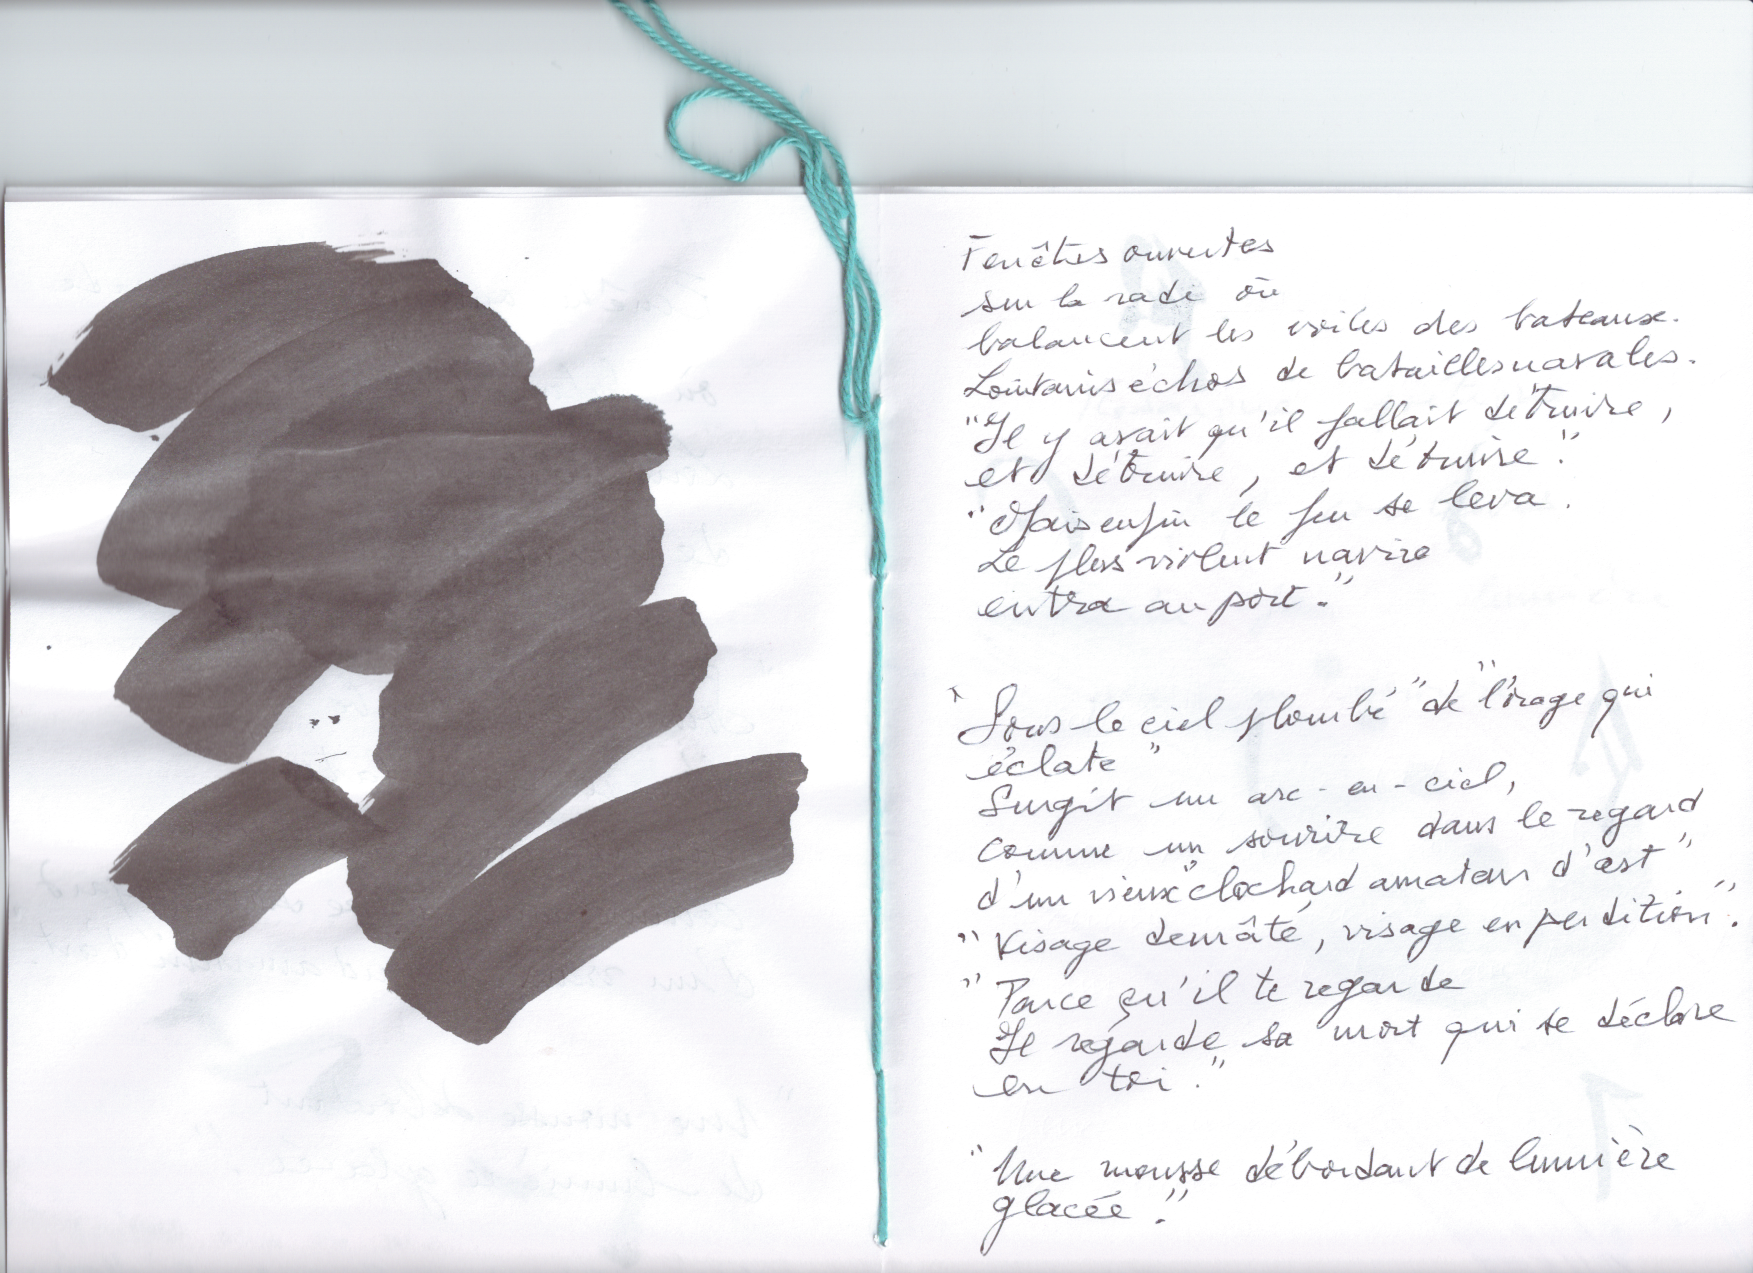 Fenêtres ouvertes
sur la rade où
balancent les voiles des bateaux.
Lointains échos de batailles navales.
"Il y avait qu'il fallait détruire,
et détruire, et détruire."
"Mais enfin le feu se leva.
Le plus violent navire
entra au port."
"Sous le ciel plombé" de "l'orage qui
éclate"
Surgit un arc-en-ciel,
comme un sourire dans le regard
d'un vieux "clochard amateur d'art"
"Visage démâté, visage en perdition".
"Parce qu'il te regarde
Il regarde sa mort qui se déclare
en toi."
"Une mousse débordant de lumière
glacée."